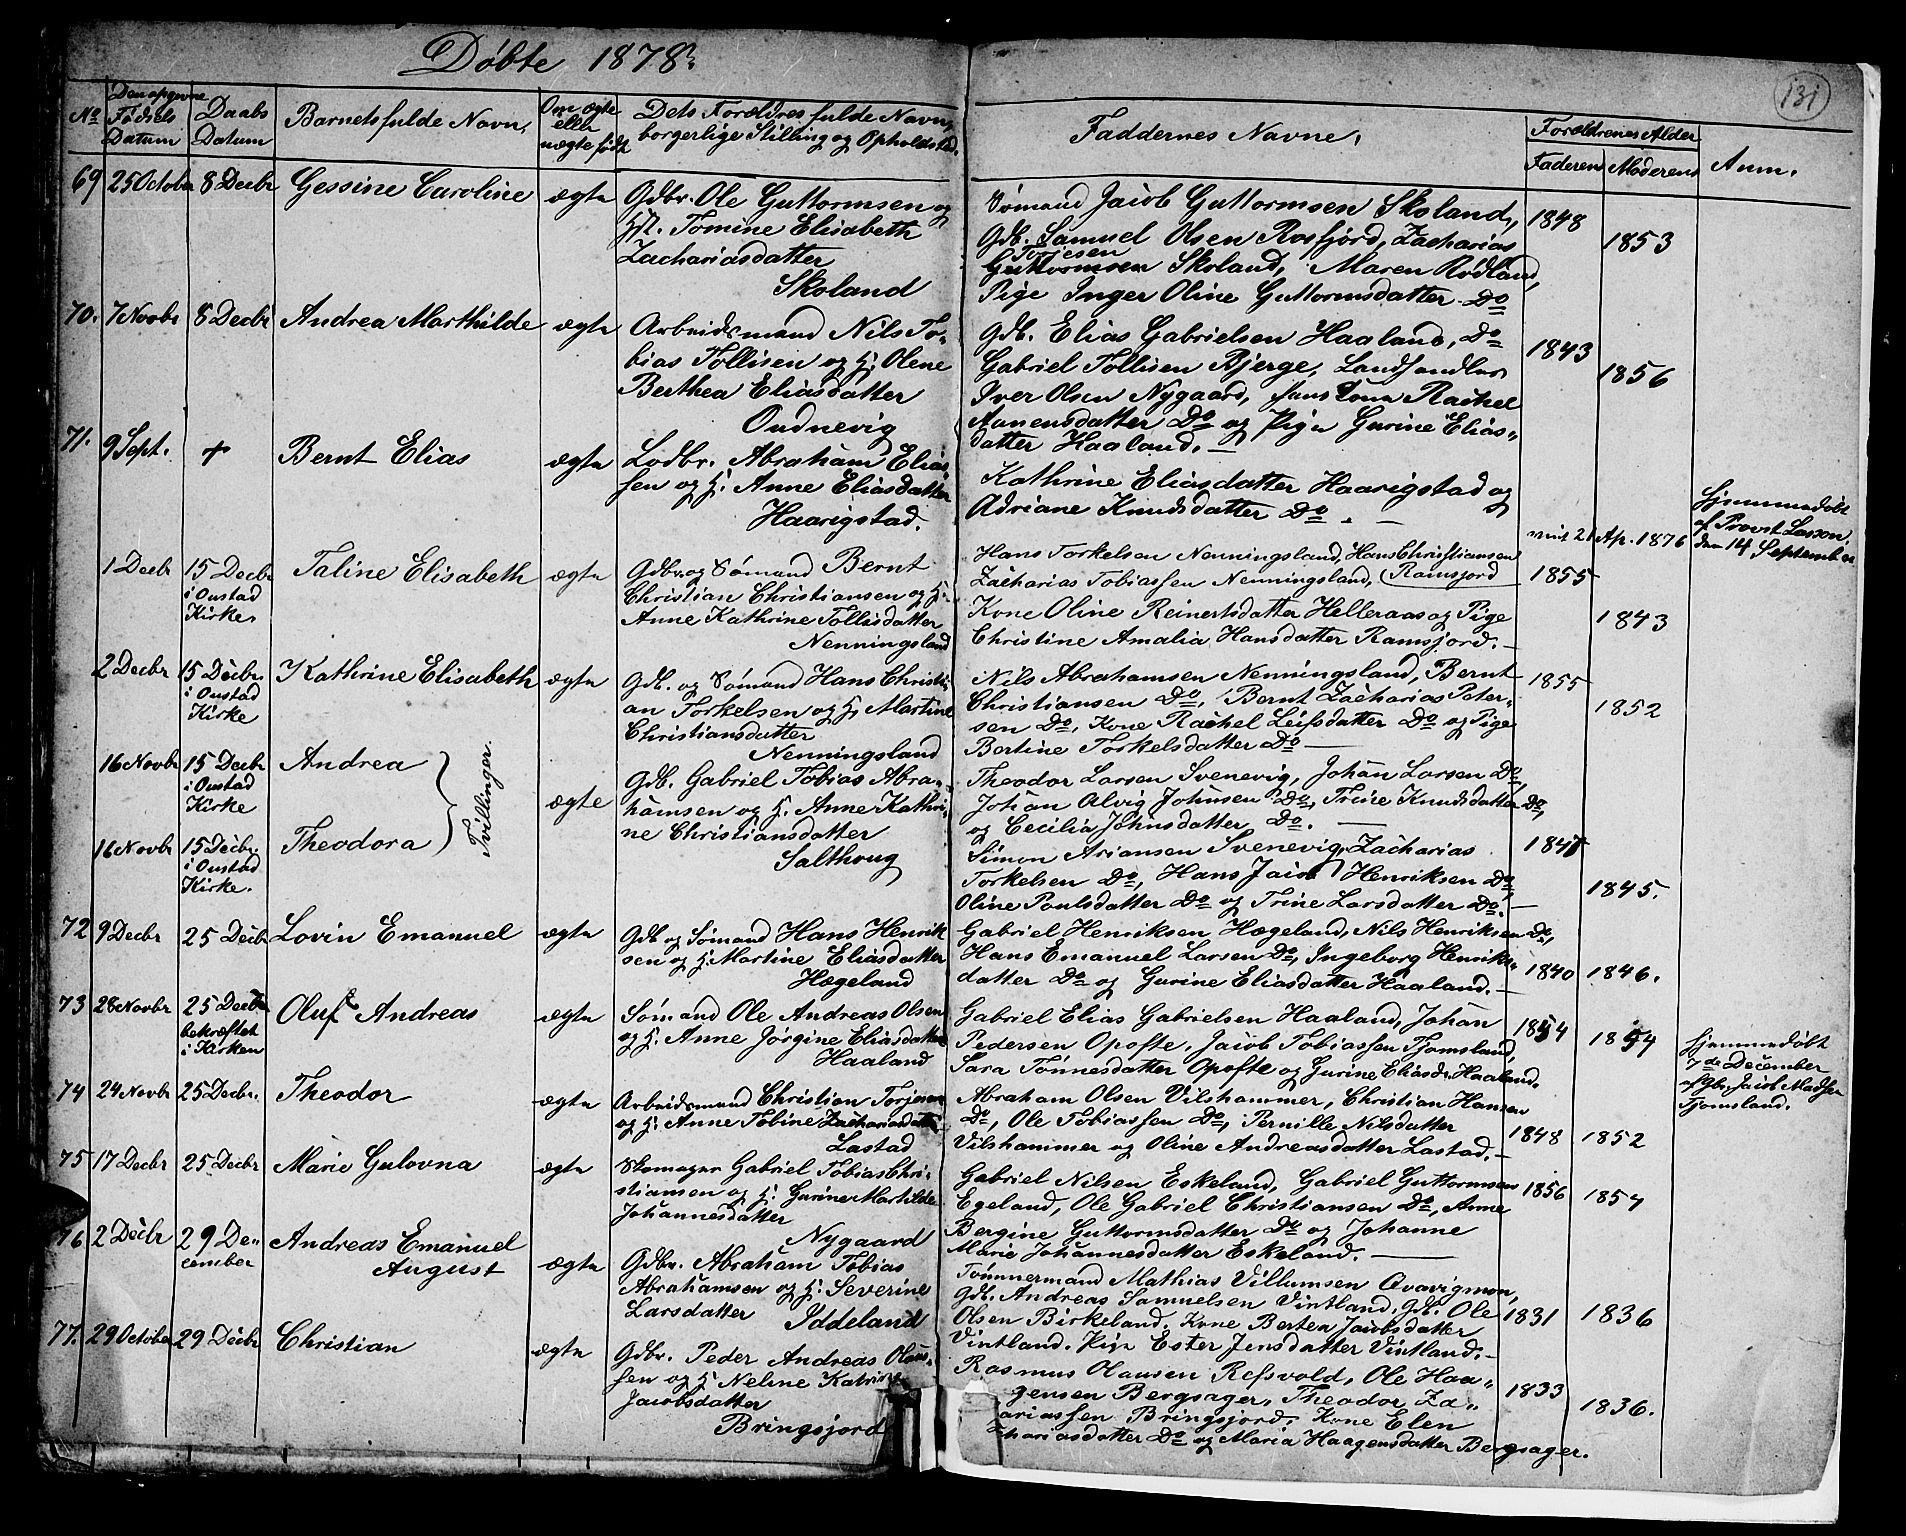 Døbte 1878.
131
No
Den opgivne Fødsels Datum
Daabs Datum
Barnets fulde Navn,
Om ægte eller uægte født
Dets Forældres fulde Navn, borgerlige Stilling og Opholdsted.
Faddernes Navne,
Forældrenes Alder
Faderens
Moderens
Anm.
69 25 October 8 Decbr Gessine Caroline ægte
Gdbr. Ole Guttormsen og
H. Tomine Elisabeth
Zachariasdatter
Skoland
Sømand Jacob Guttormsen Skoland,
Gdb. Samuel Olsen Rosfjord, Zacharias
Torjesen
Guttormsen Skoland, Maren Rødland,
Pige Inger Oline Guttormsdatter Do
1848 1853
70. 7 Novbr 8 Decbr Andrea Marthilde ægte
Arbeidsmand Nils To-
bias Tollisen og H. Olene
Berthea Eliasdatter
Oudnevig
Gdb. Elias Gabrielsen Haaland, Do
Gabriel Tollisen Bjerge, Landhandler
Iver Olsen Nygaard, hans Kone Rachel
Aanensdatter Do og Pige Gurine Elias-
datter Haaland.
1843 1856
71. 9 Sept. + Bernt Elias ægte
Lodbr. Abraham Elias-
sen og H. Anne Eliasdatter
Haarigstad.
Kathrine Eliasdatter Haarigstad og
Adriane Knudsdatter Do. —
21 Ap. 1876
Hjemmedøbt
af Provst Lassen
den 14 September
1 Decbr 15 Decbr i Oustad Kirke. Taline Elisabeth ægte
Gdbr og Sømand Bernt
Christian Christiansen og H.
Anne Kathrine Tollisdatter
Nenningsland
Hans Torkelsen Nenningsland, Hans Christiansen
Zacharias Tobiassen Nenningsland, (Ramsjord
Kone Oline Reinertsdatter Helleraas og Pige
Christine Amalia Hansdatter Ramsjord. —
1855 1843
2 Decbr 15 Decbr. i Oustad Kirke Kathrine Elisabeth ægte
Gdb. og Sømand Hans Christi-
an Torkelsen og H. Martine
Christiansdatter
Nenningsland
Nils Abrahamsen Nenningsland, Bernt
Christiansen Do, Bernt Zacharias Peter-
sen Do, Kone Rachel Leifsdatter Do og Pige
Bertine Torkelsdatter Do —
1855 1852
16 Novbr 15 Decbr i Oustad Kirke Andrea
Tvillinger.
ægte
16 Novbr 15 Decbr. i Oustad Kirke. Theodora
Gdb. Gabriel Tobias Abra-
hamsen og H. Anne Kathri-
ne Christiansdatter
Salthoug
Theodor Larsen Svenevig, Johan Larsen Do,
Johan Alvig Johnsen Do, Trine Knudsdatter Do,
og Cecilia Johnsdatter Do. —
Simon Ariansen Svenevig, Zacharias
Torkelsen Do, Hans Jacob Henriksen Do,
Oline Poulsdatter Do og Trine Larsdatter Do. —
1845.
72 9 Decbr 25 Decbr Lovin Emanuel ægte
Gdb og Sømand Hans Henrik
sen og H. Martine Eliasdatter
Hægeland
Gabriel Henriksen Hægeland, Nils Henriksen Do,
Hans Emanuel Larsen Do, Ingeborg Henriks-
datter Do og Gurine Eliasdatter Haaland. —
1840 1846.
73 28 Novbr 25 Decbr bekræftet i Kirken Oluf Andreas ægte
Sømand Ole Andreas Olsen
og H. Anne Jørgine Eliasdatter
Haaland
Gabriel Elias Gabrielsen Haaland, Johan
Pedersen Opofte, Jacob Tobiassen Tjomsland,
Sara Tønnesdatter Opofte og Gurine Eliasdr. Haaland.
1854 1854
Hjemmedøbt
7de December
af Gbr. Jacob Madsen
Tjomsland.
74 24 Novbr 25 Decbr. Theodor ægte
Arbeidsmand Christian Torjesen
og H. Anne Tobine Zachariasdatter
Lastad
Abraham Olsen Vilshammer, Christian Hansen
Do, Ole Tobiassen Do, Pernille Nilsdatter
Vilshammer og Oline Andreasdatter Lastad. —
1848 1852
75 17 Decbr 25 Decbr Marie Gulovna ægte
Skomager Gabriel Tobias Chri-
stiansen og H. Gurine Martilde
Johannesdatter
Nygaard
Gabriel Nilsen Eskeland, Gabriel Guttormsen
Egeland, Ole Gabriel Christiansen Do, Anne
Bergine Guttormsdatter Do og Johanne
Marie Johannesdatter Eskeland. —
1856 1854
76 2 Decbr 29 De-
cember Andreas Emanuel
August ægte
Gdbr. Abraham Tobias
Abrahamsen og H. Severine
Larsdatter Iddeland
Tømmermand Mathias Villumsen Qvavigmon,
Gdb. Andreas Samuelsen Vintland, Gdb. Ole
Olsen Birkeland, Kone Berten Jacobsdatter
Vintland. Pige Ester Jensdatter Vintland. —
1831 1836
77. 29 October 29 Decbr Christian ægte
Gdbr. Peder Andreas Olaus-
sen og H. Neline Katrine
Jacobsdatter
Bringsjord
Rasmus Olausen Refsvold, Ole Haa-
gensen Bergsager, Theodor Za-
ariassen Bringsjord, Kone Elen
chariasdatter Do og Maria Haagensdatter Bergsager.
1833 1836.